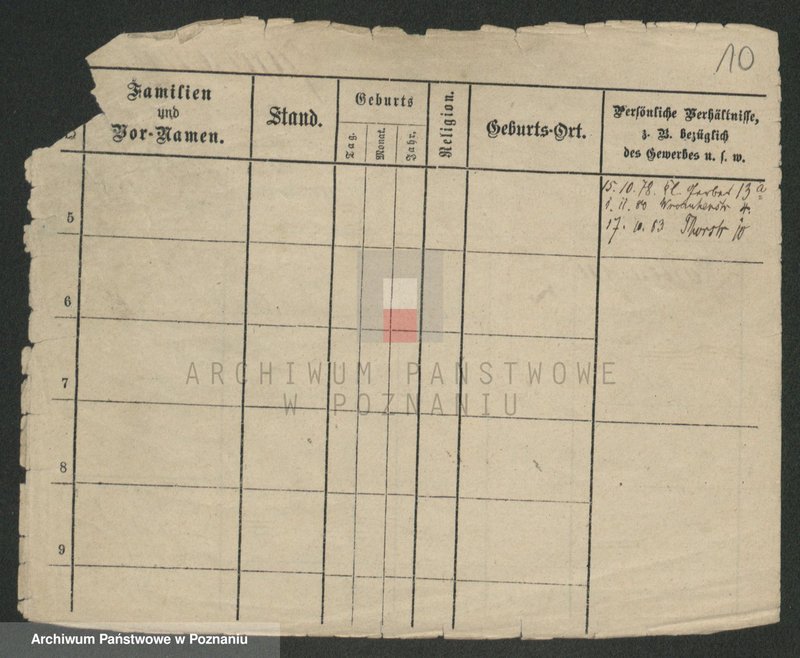 10
Familien
und
Vor-Namen.
Stand.
Geburts
Tag.
Monat.
Jahr.
Religion.
Geburts-Ort.
Persönliche Verhältnisse,
z. B. bezüglich
des Gewerbes u. s. w.
5
15. 10. 78. Kl. Gerber 13a
1. 11. 80 Wronkerstr 4.
17. 10. 83 Thorstr 10
6
7
8
9
ARCHIWUM PAŃSTWOWE
W POZNANIU
Archiwum Państwowe w Poznaniu